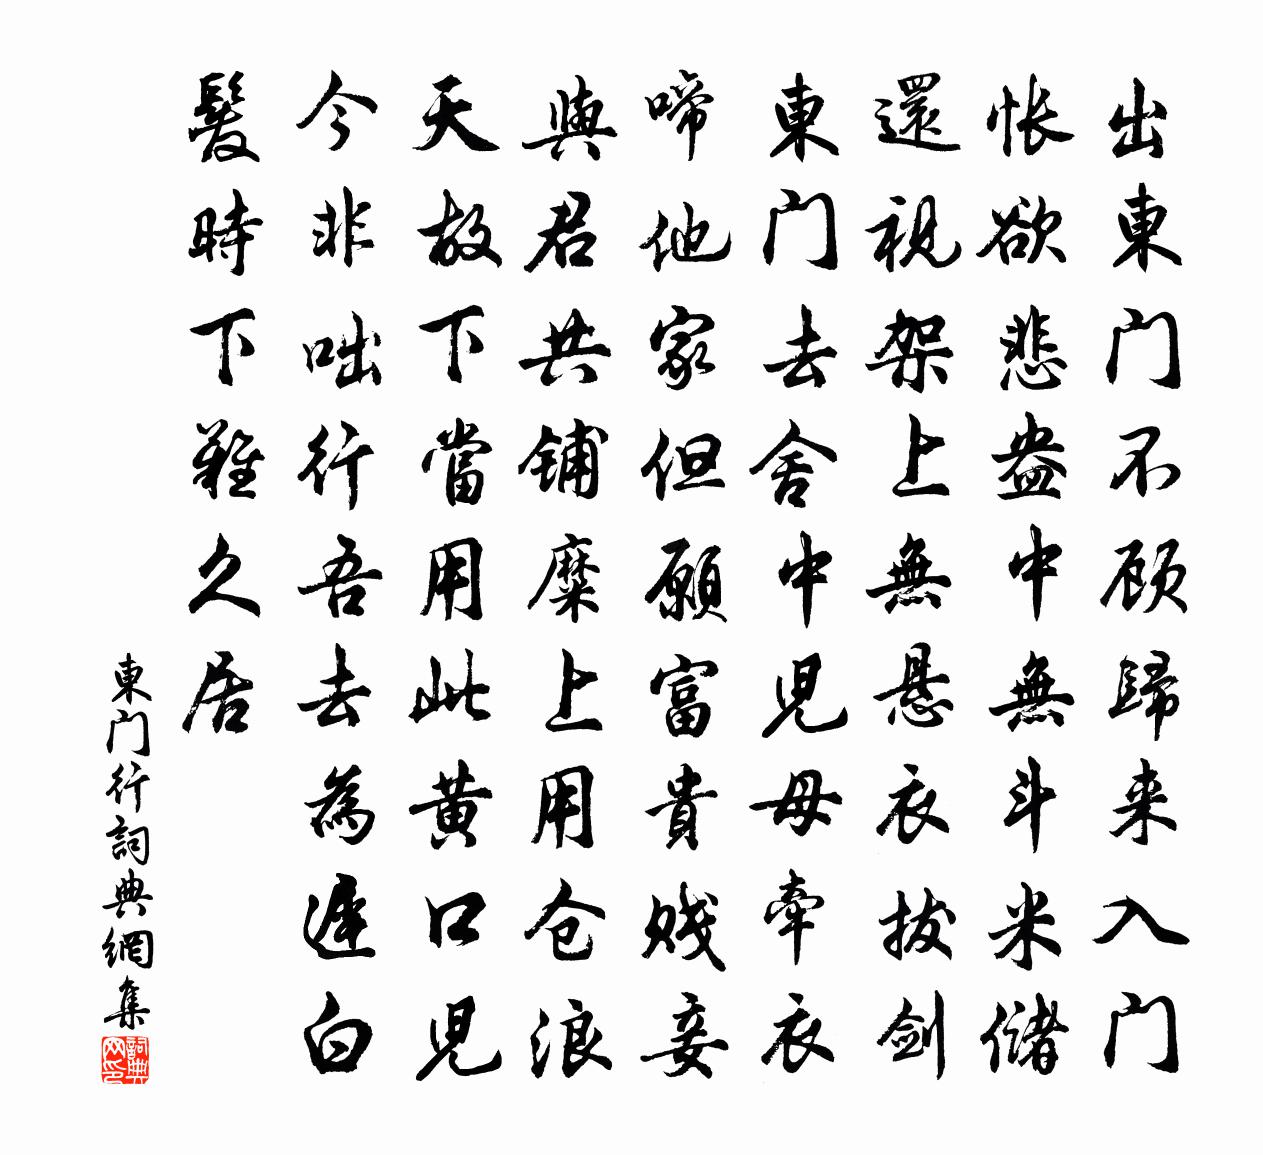 出東门不顾歸来入门
怅欲悲盎中無斗米儲
還視架上無悬衣拔剑
東门去舍中児母牽衣
啼他家但願富貴賎妾
與君共铺糜上用仓浪
天故下當用此黄口児
今非咄行吾去為遲白
髮時下難久居
東门行詞典網集
詞典网印